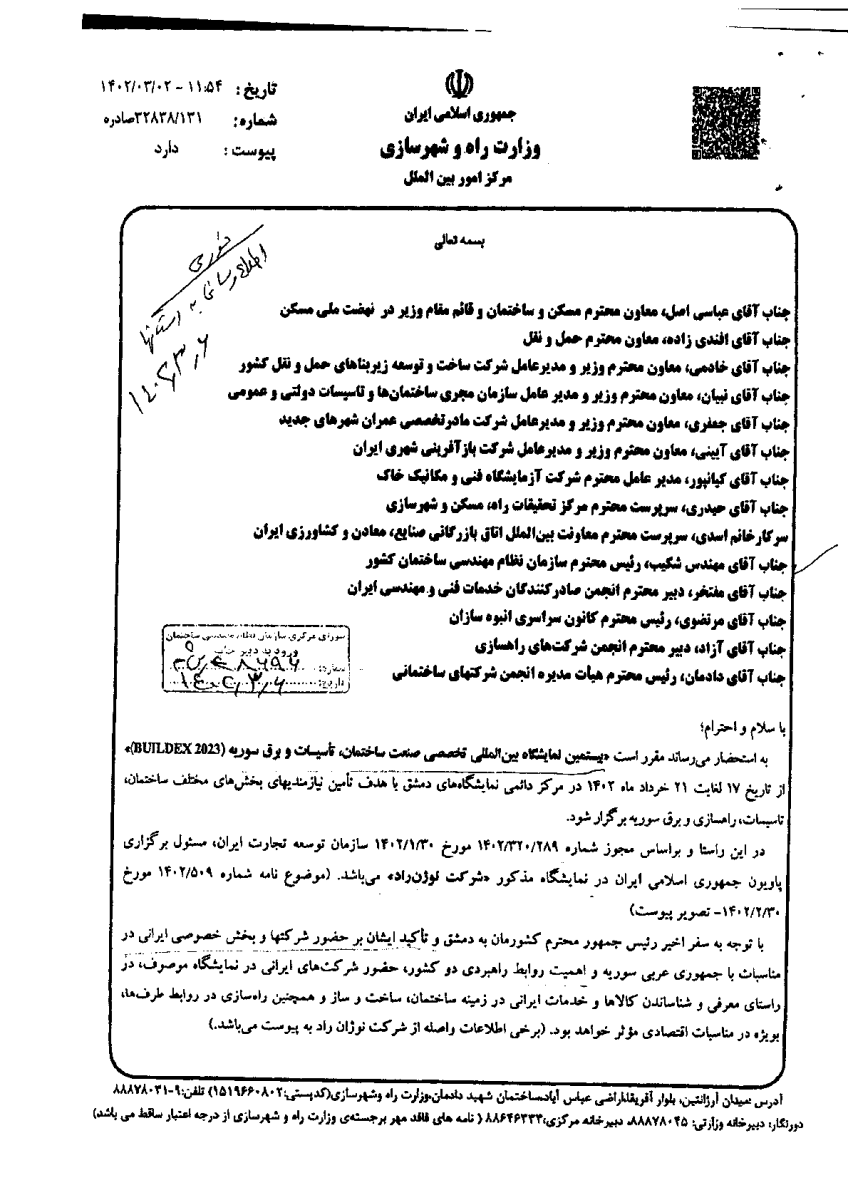 تاریخ : ۱۱:۵۴ - ۱۴۰۲/۰۳/۰۲
شماره: ۳۲۸۳۸/۱۳۱صادره
پیوست : دارد
جمهوری اسلامی ایران
وزارت راه و شهرسازی
مرکز امور بین الملل
بسمه تعالی
فوری
اطلاع رسانی به استانها
۱۴۰۲/۳/۶
جناب آقای عباسی اصل، معاون محترم مسکن و ساختمان و قائم مقام وزیر در نهضت ملی مسکن
جناب آقای افندی زاده، معاون محترم حمل و نقل
جناب آقای خادمی، معاون محترم وزیر و مدیرعامل شرکت ساخت و توسعه زیربناهای حمل و نقل کشور
جناب آقای نبیان، معاون محترم وزیر و مدیر عامل سازمان مجری ساختمان‌ها و تاسیسات دولتی و عمومی
جناب آقای جعفری، معاون محترم وزیر و مدیرعامل شرکت مادرتخصصی عمران شهرهای جدید
جناب آقای آیینی، معاون محترم وزیر و مدیرعامل شرکت بازآفرینی شهری ایران
جناب آقای کیانپور، مدیر عامل محترم شرکت آزمایشگاه فنی و مکانیک خاک
جناب آقای حیدری، سرپرست محترم مرکز تحقیقات راه، مسکن و شهرسازی
سرکارخانم اسدی، سرپرست محترم معاونت بین‌الملل اتاق بازرگانی صنایع، معادن و کشاورزی ایران
جناب آقای مهندس شکیب، رئیس محترم سازمان نظام مهندسی ساختمان کشور
جناب آقای مفتخر، دبیر محترم انجمن صادرکنندگان خدمات فنی و مهندسی ایران
جناب آقای مرتضوی، رئیس محترم کانون سراسری انبوه سازان
جناب آقای آزاد، دبیر محترم انجمن شرکت‌های راهسازی
جناب آقای دادمان، رئیس محترم هیأت مدیره انجمن شرکتهای ساختمانی
شورای مرکزی سازمان نظام مهندسی ساختمان
ورود به دبیرخانه
شماره:
تاریخ: ۱۴۰۲/۳/۶
با سلام و احترام؛
به استحضار می‌رساند مقرر است «بیستمین نمایشگاه بین‌المللی تخصصی صنعت ساختمان، تأسیسات و برق سوریه (BUILDEX 2023)»
از تاریخ ۱۷ لغایت ۲۱ خرداد ماه ۱۴۰۲ در مرکز دائمی نمایشگاه‌های دمشق با هدف تأمین نیازمندیهای بخش‌های مختلف ساختمان،
تاسیسات، راهسازی و برق سوریه برگزار شود.
در این راستا و براساس مجوز شماره ۱۴۰۲/۳۲۰/۲۸۹ مورخ ۱۴۰۲/۱/۳۰ سازمان توسعه تجارت ایران، مسئول برگزاری
پاویون جمهوری اسلامی ایران در نمایشگاه مذکور «شرکت نوژن‌راد» می‌باشد. (موضوع نامه شماره ۱۴۰۲/۵۰۹ مورخ
۱۴۰۲/۲/۳۰- تصویر پیوست)
با توجه به سفر اخیر رئیس جمهور محترم کشورمان به دمشق و تأکید ایشان بر حضور شرکتها و بخش خصوصی ایرانی در
مناسبات با جمهوری عربی سوریه و اهمیت روابط راهبردی دو کشور، حضور شرکت‌های ایرانی در نمایشگاه موصوف، در
راستای معرفی و شناساندن کالاها و خدمات ایرانی در زمینه ساختمان، ساخت و ساز و همچنین راه‌سازی در روابط طرف‌ها،
بویژه در مناسبات اقتصادی مؤثر خواهد بود. (برخی اطلاعات واصله از شرکت نوژان راد به پیوست می‌باشد.)
آدرس :میدان آرژانتین، بلوار آفریقا،اراضی عباس آباد،ساختمان شهید دادمان،وزارت راه وشهرسازی(کدپستی:۱۵۱۹۶۶۰۸۰۲) تلفن:۹-۸۸۸۷۸۰۳۱
دورنگار: دبیرخانه وزارتی: ۸۸۸۷۸۰۴۵، دبیرخانه مرکزی:۸۸۶۴۶۳۳۳ ( نامه های فاقد مهر برجسته‌ی وزارت راه و شهرسازی از درجه اعتبار ساقط می باشد)